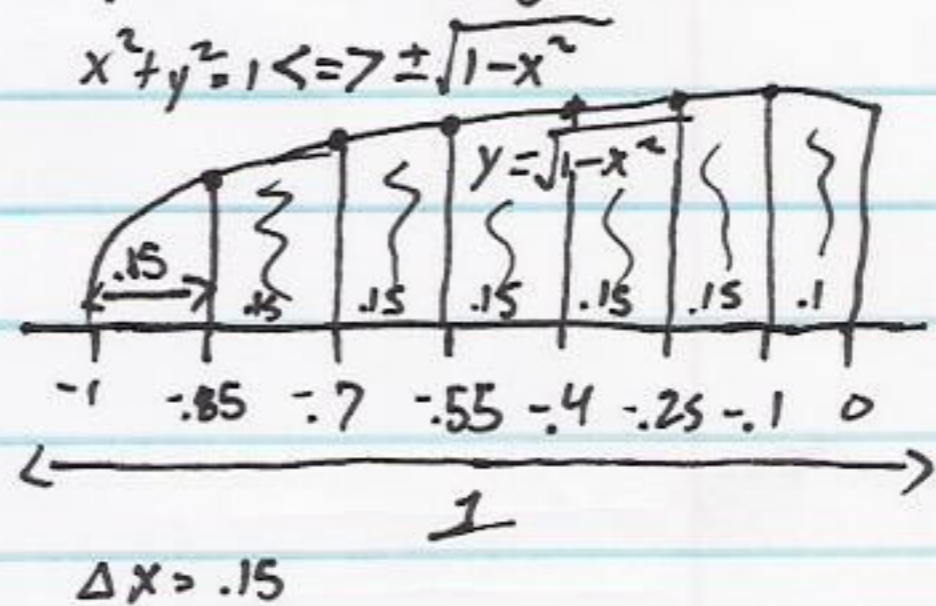 x²+y²=1 <=> ±√1-x²
y=√1-x²
.15 .15 .15 .15 .15 .15 .1
-1 -.85 -.7 -.55 -.4 -.25 -.1 0
1
Δx=.15